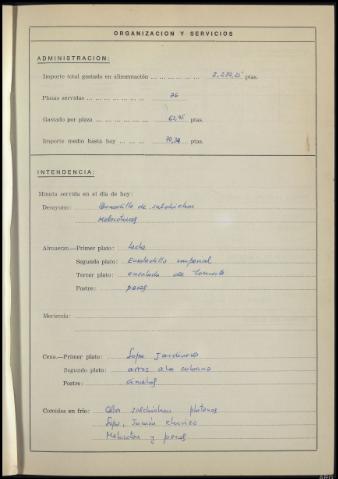 ORGANIZACION Y SERVICIOS
ADMINISTRACION:
Importe total gastado en alimentación ... ... ... ... ... ptas.
Plazas servidas ... ... ... ... ... ... 36
Gastado por plaza ... ... ... ... 62,95 ptas.
Importe medio hasta hoy ... ... ... 70,34 ptas.
INTENDENCIA:
Minuta servida en el día de hoy:
Desayuno: de salchichon
Melocotones
Almuerzo.—Primer plato: leche
Segundo plato: Ensaladilla imperial
Tercer plato: ensalada de tomate
Postre: peras
Merienda:
Cena.—Primer plato: Sopa Jardinera
Segundo plato: arroz a la cubana
Postre:
Comidas en frío: salchichon platanos
Sopa, Jamón chorizo
Melocoton y peras